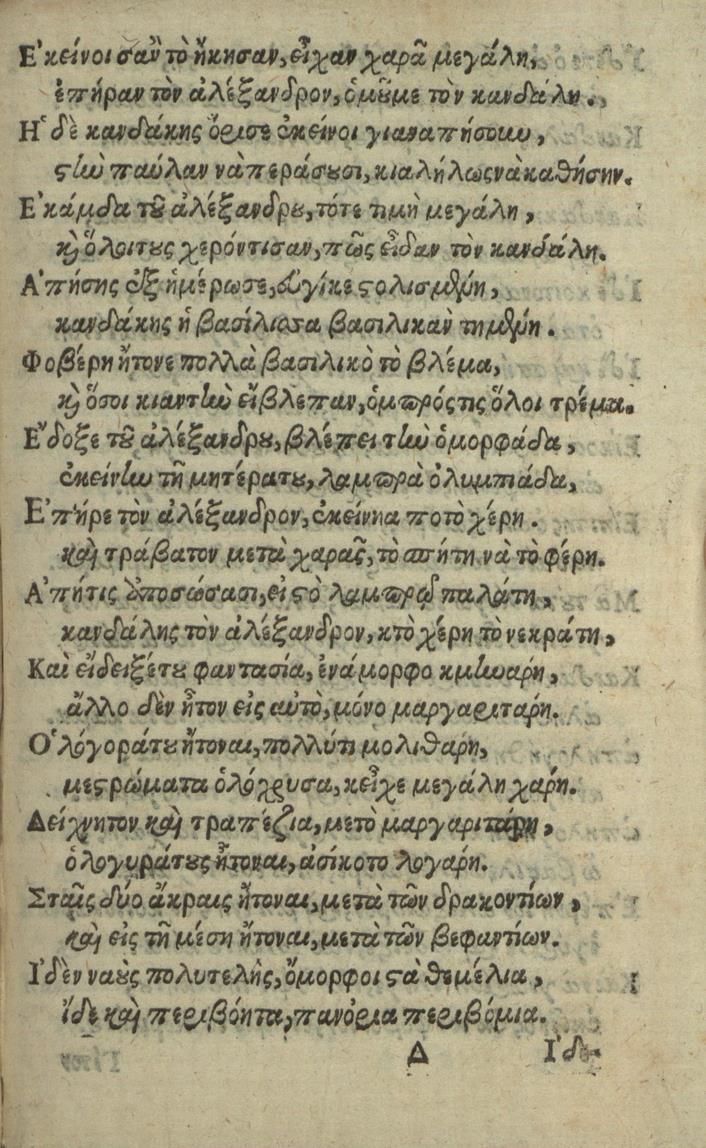 Ε᾿κείνοι σαν τὸ ἤκησαν, εἶχαν χαρᾶ μεγάλη,
ἐπήραν τὸν ἀλέξανδρον, ὁμοῦμε τὸν κανδάλη.
Η῾ δὲ κανδάκης ὅρισε ἐκείνοι γιαναπήσουν,
στὴν παύλαν νὰπεράσουσι, κιαλήλωςνὰκαθήσην.
Ε᾿κάμδα τοῦ ἀλέξανδρου, τότε τιμὴ μεγάλη,
κὶ ὅλοιτους χερόντισαν, πῶς εἶδαν τὸν κανδάλη.
Α᾿πήσης ἐξ ἡμέρωσε, εὐγίκε στολισμένη,
κανδάκης ἡ βασίλισσα βασιλικὰν τημένη.
Φοβέρη ἤτονε πολλὰ βασιλικὸ τὸ βλέμα,
κὶ ὅσοι κιαντὴν εἴβλεπαν, ὀμπρόςτις ὅλοι τρέμα.
Ε῎δοξε τοῦ ἀλέξανδρου, βλέπει τὴν ὀμορφάδα,
ἐκείνην τῆ μητέρατου, λαμπρὰ ὀλυμπιάδα,
Ε᾿πῆρε τὸν ἀλέξανδρον, ἐκείνηα ποτὸ χέρη.
καὶ τράβατον μετὰ χαρᾶς, τὸ σπήτη νὰ τὸ φέρη.
Α᾿πήτις ἀποσώσασι, εἰς τὸ λαμπρὸ παλάτη,
κανδάλης τὸν ἀλέξανδρον, κτὸ χέρη τὸνεκράτη,
Καὶ εἴδειξέτου φαντασία, ἐνάμορφο κμηνάρη,
ἄλλο δὲν ἦτον εἰς αὐτὸ, μόνο μαργαριτάρη.
Ο῾λόγοράτου ἤτοναι, πολλύτι μολιθάρη,
μεστρώματα ὁλόχρυσα, κεἶχε μεγάλη χάρη.
Δείχνητον καὶ τραπέζια, μετὸ μαργαριτάρη,
ὁλογυράτους ἤτοναι, ἀσίκοτο λογάρη.
Σταῖς δύο ἄκραις ἤτοναι, μετὰ τῶν δρακοντίων,
καὶ εἰς τῆ μέση ἤτοναι, μετὰ τῶν βεφαντίων.
Ι᾿δὲν ναοὺς πολυτελῆς, ὄμορφοι στὰ θεμέλια,
ἴδε καὶ περιβόητα, πανόρια περιβόμια.
Δ Ι᾿δε